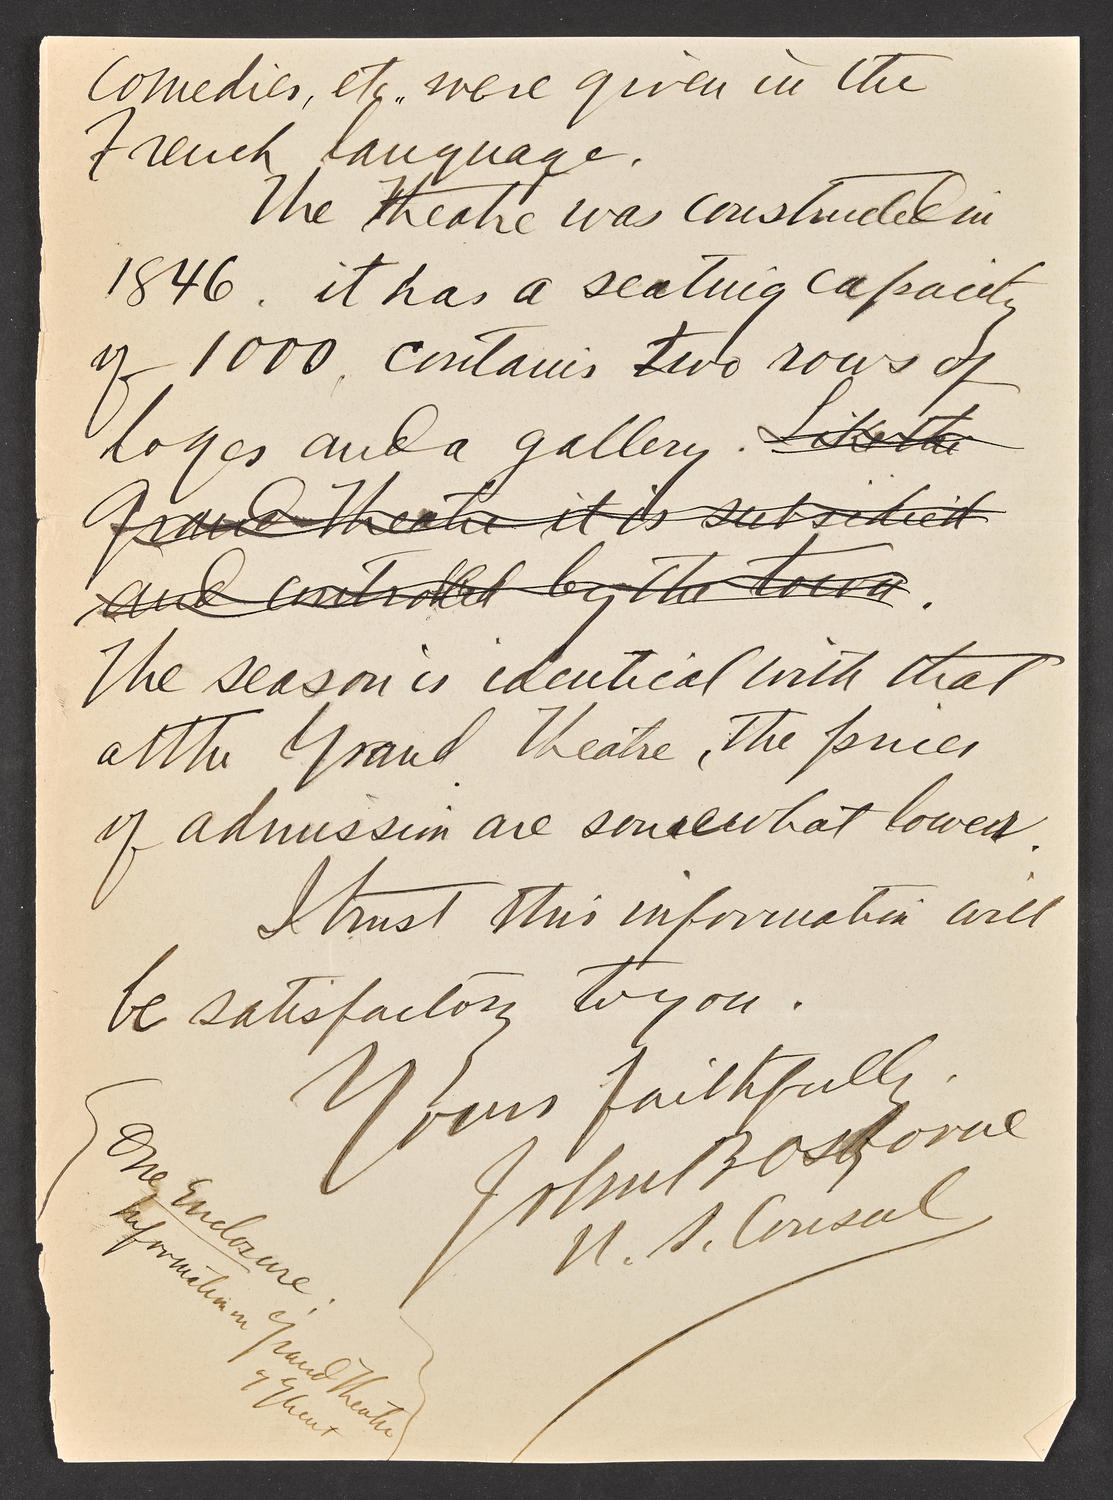 Comedies, etc., were given in the
French language.
The Theatre was constructed in
1846. it has a seating capacity
of 1000, contains two rows of
loges and a gallery. Like the
Grand Theatre it is subsidied
and controlled by the town.
The season is identical with that
at the Grand Theatre, the prices
of admission are somewhat lower.
I trust this information will
be satisfactory to you.
Yours faithfully.
John B Osborne
U. S. Consul
One Enclosure:
Information on
Grand Theatre
of Ghent